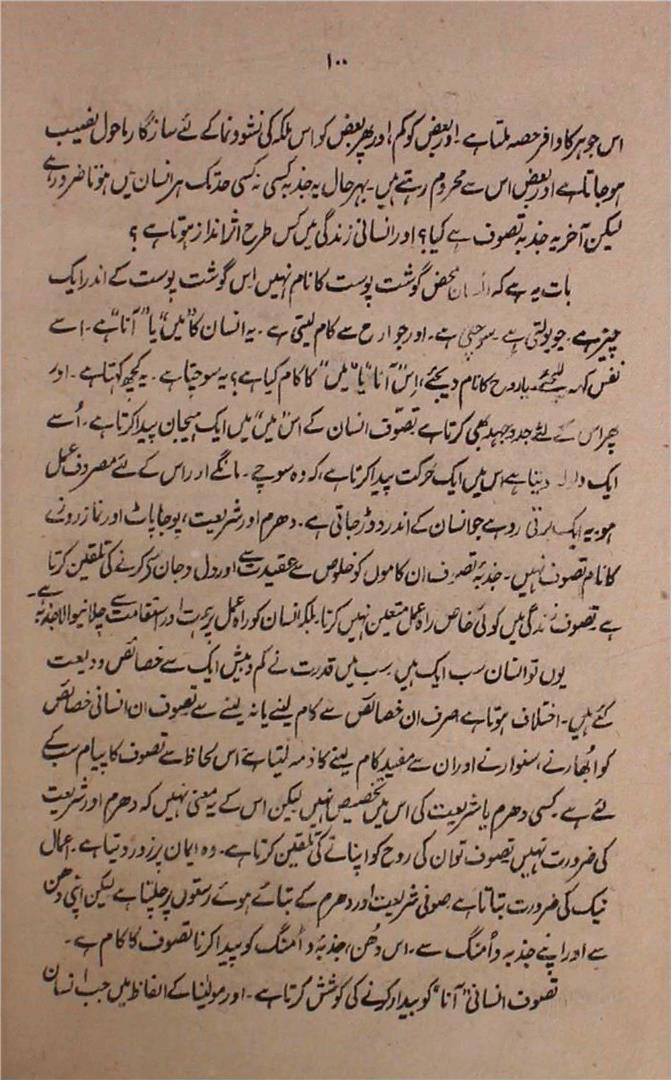 ۱۰۰
اس جوہر کا وافر حصہ ملتا ہے۔ اور بعض کو کم، اور پھر بعض کو اس ملکہ کی نشوونما کے لئے سازگار ماحول نصیب
ہوجاتا ہے اور بعض اس سے محروم رہتے ہیں۔ بہر حال یہ جذبہ کسی نہ کسی حد تک ہر انسان میں ہوتا ضرور ہے
لیکن آخر یہ جذبہ تصوف ہے کیا؟ اور انسانی زندگی میں کس طرح اثر انداز ہوتا ہے؟
بات یہ ہے کہ انسان محض گوشت پوست کا نام نہیں اس گوشت پوست کے اندر ایک
چیز ہے۔ جو بولتی ہے۔ سوچتی ہے۔ اور جوارح سے کام لیتی ہے۔ یہ انسان کا "میں" یا "آنا" ہے۔ اسے
نفس کہہ لیجئے۔ یا روح کا نام دیجئے، اس "آنا" یا "میں" کا کام کیا ہے؟ یہ سوچتا ہے۔ یہ کچھ کہتا ہے۔ اور
پھر اس کے لئے جدوجہد بھی کرتا ہے تصوّف انسان کے اس "میں" میں ایک ہیجان پیدا کرتا ہے۔ اُسے
ایک ولولہ دیتا ہے اس میں ایک حرکت پیدا کرتا ہے، کہ وہ سوچے۔ مانگے اور اس کے لئے مصروف عمل
ہو، یہ ایک برقی رو ہے جو انسان کے اندر دوڑ جاتی ہے۔ دھرم اور شریعت، پوجا پاٹ اور نماز روزے
کا نام تصوف نہیں۔ جذبۂ تصوف ان کاموں کو خلوص سے عقیدت سے اور دل و جان سے کرنے کی تلقین کرتا
ہے۔ تصوف زندگی میں کوئی خاص راہ عمل متعین نہیں کرتا۔ بلکہ انسان کو راہ عمل پر ہمت اور استقامت سے چلانیوالا جذبہ ہے۔
یوں تو انسان سب ایک ہیں۔ سب میں قدرت نے کم و بیش ایک سے خصائص ودیعت
کئے ہیں۔ اختلاف ہوتا ہے صرف ان خصائص سے کام لینے یا نہ لینے سے تصوف ان انسانی خصائص
کو اُبھارنے، سنوارنے اور ان سے مفید کام لینے کا ذمہ لیتا ہے اس لحاظ سے تصوف کا پیام سب کے
لئے ہے۔ کسی دھرم یا شریعت کی اس میں تخصیص نہیں لیکن اس کے یہ معنی نہیں کہ دھرم اور شریعت
کی ضرورت نہیں تصوف تو ان کی روح کو اپنانے کی تلقین کرتا ہے۔ وہ ایمان پر زور دیتا ہے۔ اعمال
نیک کی ضرورت بتاتا ہے صوفی شریعت اور دھرم کے بتائے ہوئے رستوں پر چلتا ہے لیکن اپنی دھن
سے اور اپنے جذبہ و اُمنگ سے۔ اس دُھن، جذبۂ و اُمنگ کو پیدا کرنا تصوف کا کام ہے۔
تصوف انسانی "آنا" کو بیدار کرنے کی کوشش کرتا ہے۔ اور مولینا کے الفاظ میں جب انسان